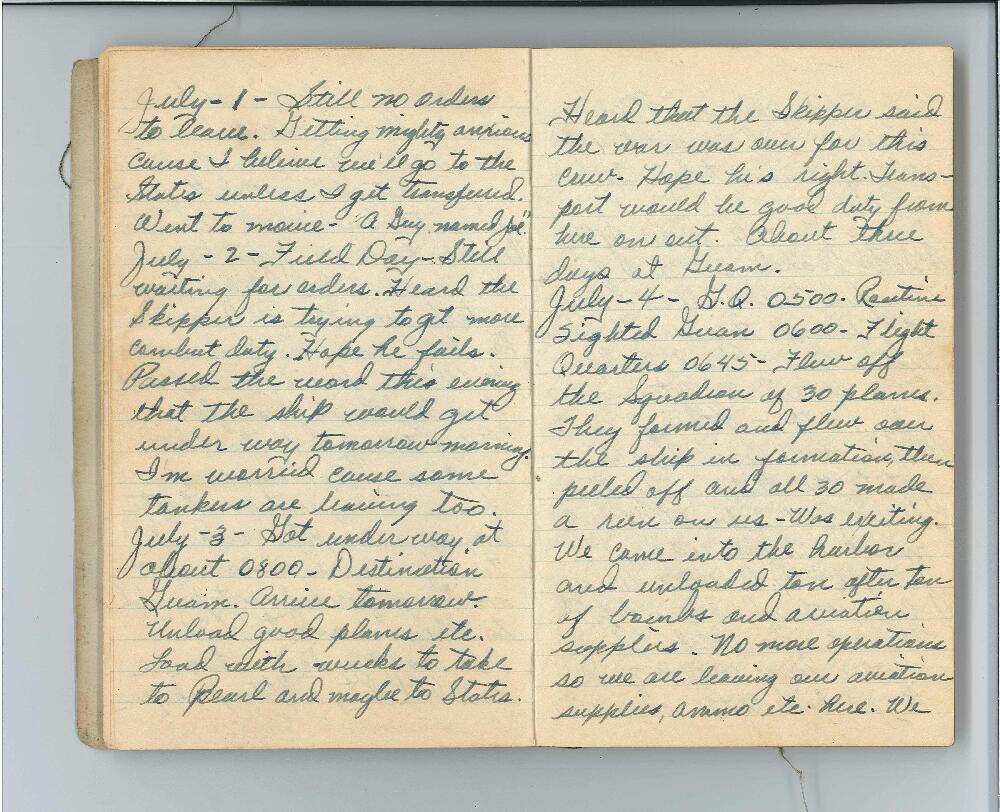 July - 1 - Still no orders
to leave. Getting mighty anxious
cause I believe we'll go to the
States unless I get transferred.
Went to movie - "A Guy named Joe"
July - 2 - Field Day - Still
waiting for orders. Heard the
Skipper is trying to get more
combat duty. Hope he fails.
Passed the word this evening
that the ship would get
under way tomorrow morning.
I'm worried cause some
tankers are leaving too.
July - 3 - Got under way at
about 0800 - Destination
Guam. Arrive tomorrow.
Unload good planes etc.
Load with wrecks to take
to Pearl and maybe to States.
Heard that the Skipper said
the war was over for this
crew. Hope he's right. Trans-
port would be good duty from
here on out. About three
days at Guam.
July - 4 - G.Q. 0500. Routine
Sighted Guam 0600 - Flight
Quarters 0645 - Flew off
the Squadron of 30 planes.
They formed and flew over
the ship in formation, then
peeled off and all 30 made
a run on us - Was exciting.
We came into the harbor
and unloaded ton after ton
of bombs and aviation
supplies. No more operations
so we are leaving our aviation
supplies, ammo etc. here. We